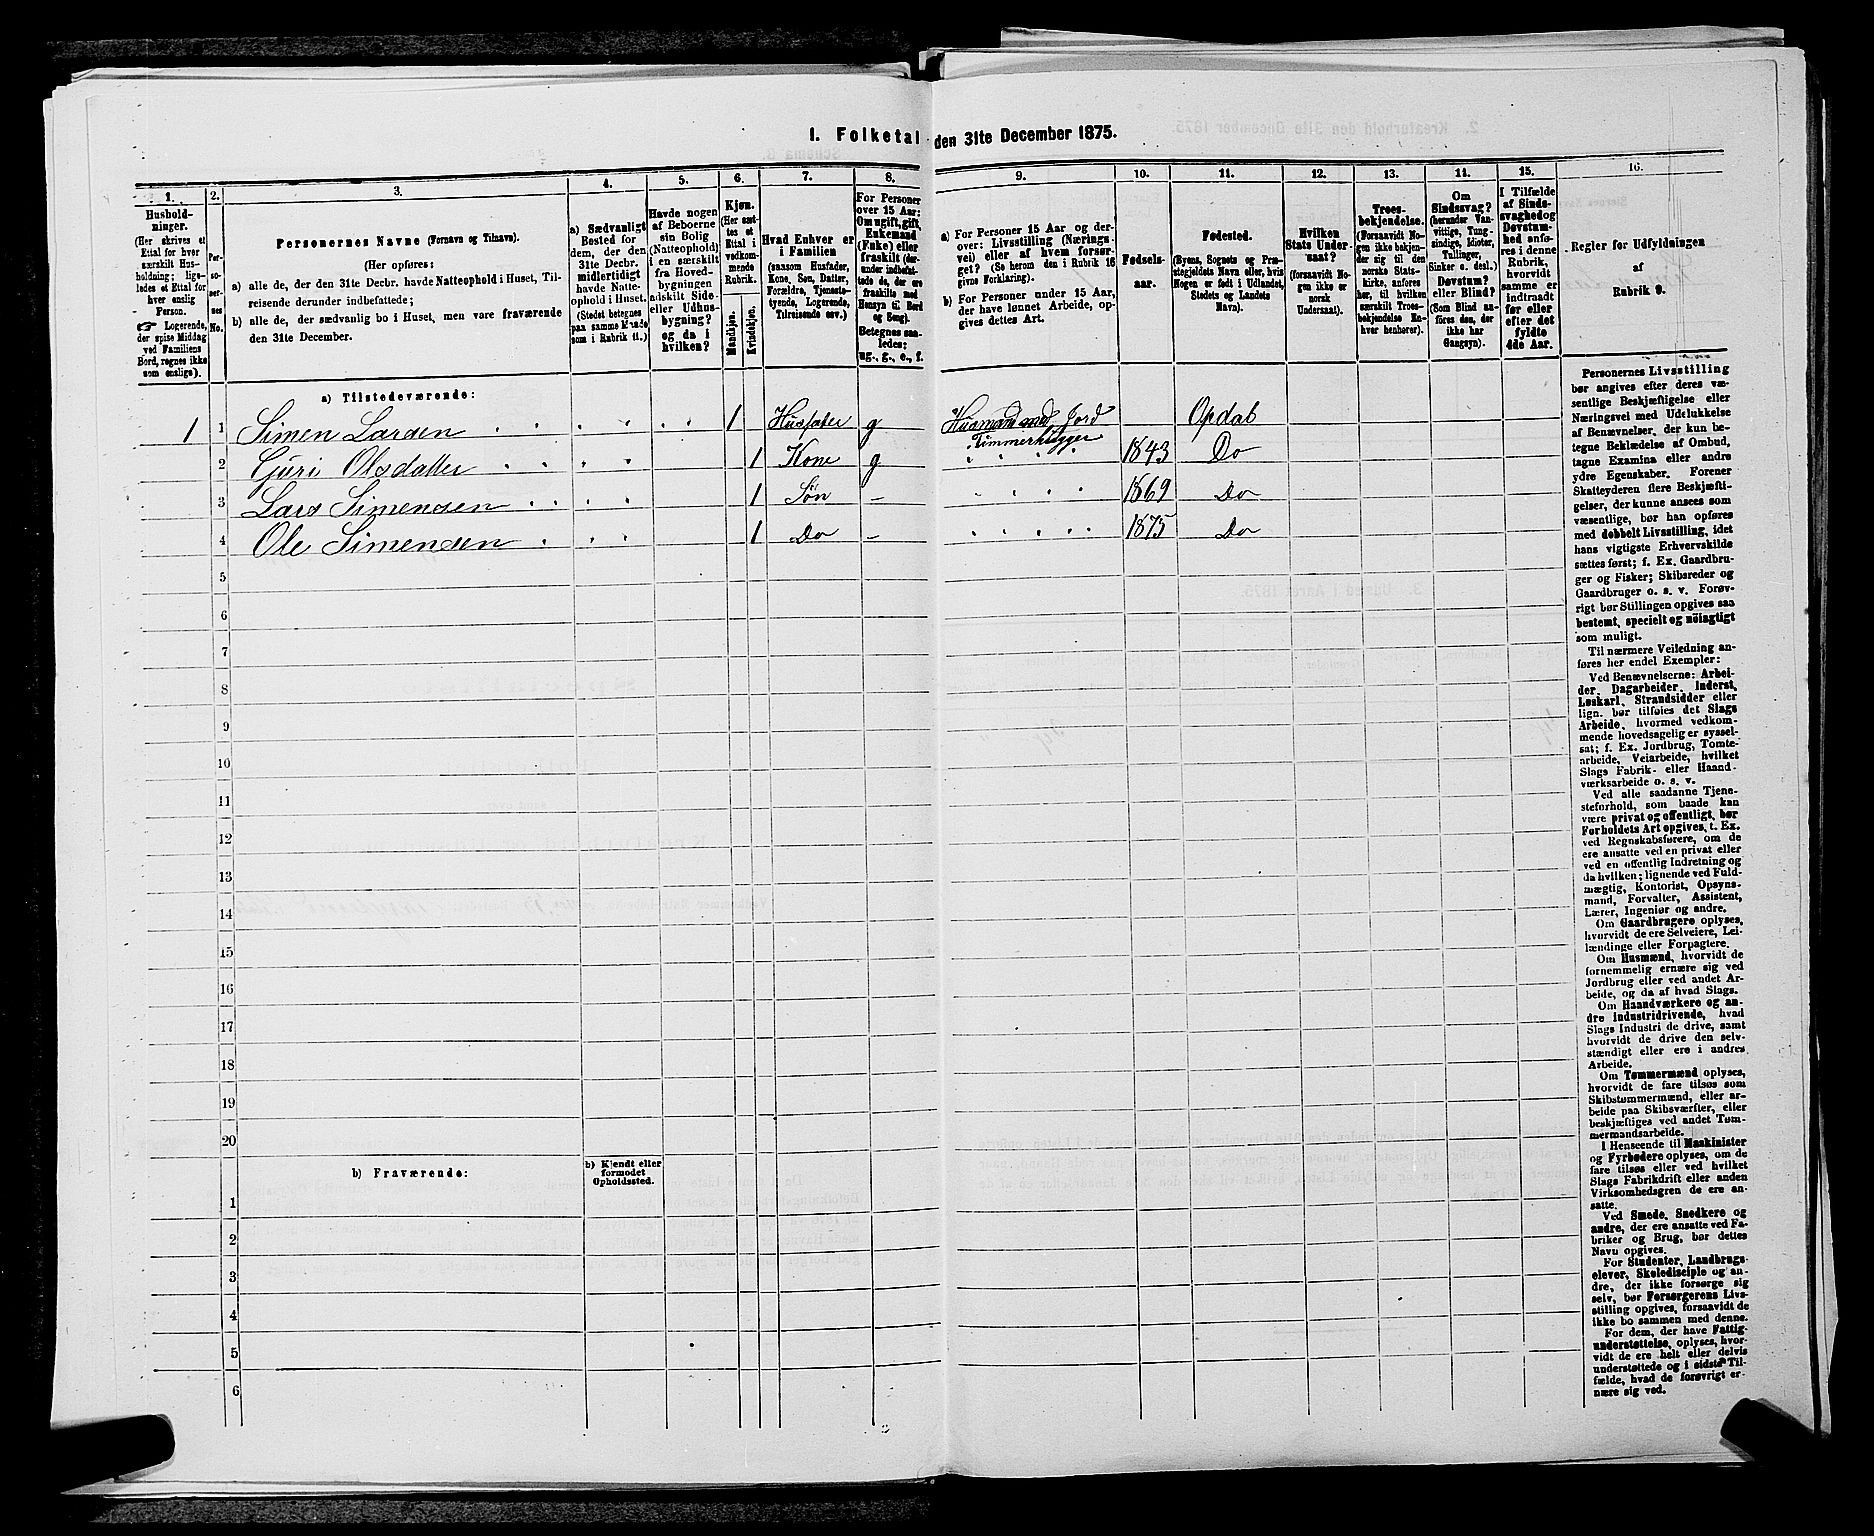 1. Folketal den 31te December 1875.
1. 2. 3. 4. 5. 6. 7. 8. 9. 10. 11. 12. 13. 14. 15. 16.
Hushold-
ninger.
(Her skrives et
Ettal for hver
særskilt Hus-
holdning; lige-
ledes et Ettal for
hver enslig
Person.
Logerende,
der spise Middag
ved Familiens
Bord, regnes ikke
som enslige).
Per-
so-
ner-
nes
No.
Personernes Navne (Fornavn og Tilnavn).
(Her opføres:
a) alle de, der den 31te Decbr. havde Natteophold i Huset, Til-
reisende derunder indbefattede;
b) alle de, der sædvanlig bo i Huset, men vare fraværende
den 31te December.
a) Sædvanligt
Bosted for
dem, der den
31te Decbr.
midlertidigt
havde Natte-
ophold i Huset.
(Stedet betegnes
paa samme Maade
som i Rubrik 11.)
Havde nogen
af Beboerne
sin Bolig
(Natteophold)
i en særskilt
fra Hoved-
bygningen
adskilt Side-
eller Udhus-
bygning?
og da i
hvilken?
Kjøn.
(Her sæt-
tes et
Ettal i
vedkom-
mende
Rubrik.
Mandkjøn.
Kvindekjøn.
Hvad Enhver er
i Familien
(saasom Husfader,
Kone, Søn, Datter,
Forældre, Tjeneste-
tyende, Logerende,
Tilreisende osv.)
For Personer
over 15 Aar:
Om ugift, gift,
Enkemand
(Enke) eller
fraskilt (der-
under indbefat-
tede de, der ere
fraskilte med
Hensyn til Bord
og Seng).
Betegnes saa-
ledes:
ug., g., e., f.
a) For Personer 15 Aar og der-
over: Livsstilling (Nærings-
vei) eller af hvem forsør-
get? (Se herom den i Rubrik 16
givne Forklaring).
b) For Personer under 15 Aar,
der have lønnet Arbeide, op-
gives dettes Art.
Fødsels-
aar.
Fødested.
(Byens, Sognets og Præ-
stegjeldets Navn eller, hvis
Nogen er født i Udlandet,
Stedets og Landets
Navn).
Hvilken
Stats Under-
saat?
(forsaavidt No-
gen ikke er
norsk
Undersaat).
Troes-
bekjendelse.
(Forsaavidt No-
gen ikke bekjen-
der sig til den
norske Stats-
kirke, anføres
her, til hvilken
særskilt Troes-
bekjendelse En-
hver henhører).
Om
Sindssvag?
(herunder Van-
vittige, Tung-
sindige, Idioter,
Tullinger,
Sinker o. desl.)
Døvstum?
eller Blind?
(Som Blind an-
føres den, der
ikke har
Gangsyn).
I Tilfælde
af Sinds-
svaghed og
Døvstum-
hed anfø-
res i denne
Rubrik,
hvorvidt
samme er
indtraadt
før eller
efter det
fyldte
4de Aar.
Regler for Udfyldningen
af
Rubrik 9.
a) Tilstedeværende:
1 1 Simen Larsen 1 Husfader g Husmand med Jord Opdal
Tømmerhugger
2 Guri Olsdatter 1 Kone g 1843 Do
3 Lars Simensen 1 Søn – 1869 Do
4 Ole Simensen 1 Do – 1875 Do
5
6
7
8
9
10
11
12
13
14
15
16
17
18
19
20
b) Fraværende:
b) Kjendt eller
formodet
Opholdssted.
1
2
3
4
5
6
Personernes Livsstilling
bør angives efter deres væ-
sentlige Beskjæftigelse eller
Næringsvei med Udelukkelse
af Benævnelser, der kun be-
tegne Beklædelse af Ombud,
tagne Examina eller andre
ydre Egenskaber. Forener
Skatteyderen flere Beskjæfti-
gelser, der kunne ansees som
væsentlige, bør han opføres
med dobbelt Livsstilling, idet
hans vigtigste Erhvervskilde
sættes først; f. Ex. Gaardbru-
ger og Fisker; Skibsreder og
Gaardbruger o. s. v. Forøv-
rigt bør Stillingen opgives saa
bestemt, specielt og nöiagtigt
som muligt.
Til nærmere Veiledning an-
føres her endel Exempler:
Ved Benævnelserne: Arbei-
der, Dagarbeider, Inderst,
Løskarl, Strandsidder eller
lign. bør tilføies det Slags
Arbeide, hvormed vedkom-
mende hovedsagelig er syssel-
sat; f. Ex. Jordbrug, Tomte-
arbeide, Veiarbeide, hvilket
Slags Fabrik- eller Haand-
værksarbeide o. s. v.
Ved alle saadanne Tjene-
steforhold, som baade kan
være privat og offentligt, bør
Forholdets Art opgives, t. Ex.
ved Regnskabsførere, om de
ere ansatte ved en privat eller
ved en offentlig Indretning og
da hvilken; lignende ved Fuld-
mægtig, Kontorist, Opsyns-
mand, Forvalter, Assistent,
Lærer, Ingeniør og andre.
Om Gaardbrugere oplyses,
hvorvidt de ere Selveiere, Lei-
lændinge eller Forpagtere.
Om Husmænd, hvorvidt de
fornemmelig ernære sig ved
Jordbrug eller ved andet Ar-
beide, og da af hvad Slags.
Om Haandværkere og an-
dre Industridrivende, hvad
Slags Industri de drive, samt
hvorvidt de drive den selv-
stændigt eller ere i andres
Arbeide.
Om Tømmermænd oplyses,
hvorvidt de fare tilsøs som
Skibstømmermænd, eller ar-
beide paa Skibsværfter, eller
beskjæftiges ved andet Tøm-
mermandsarbeide.
I Henseende til Maskinister
og Fyrbødere oplyses, om de
fare tilsøs eller ved hvilket
Slags Fabrikdrift eller anden
Virksomhedsgren de ere an-
satte.
Ved Smede, Snedkere og
andre, der ere ansatte ved Fa-
briker og Brug, bør dettes
Navn opgives.
For Studenter, Landbrugs-
elever, Skoledisciple og an-
dre, der ikke forsørge sig
selv, bør Forsørgerens Livs-
stilling opgives, forsaavidt de
ikke bo sammen med denne.
For dem, der have Fattig-
understøttelse, oplyses, hvor-
vidt de ere helt eller delvis
understøttede og i sidste Til-
fælde, hvad de forøvrigt er-
nære sig ved.